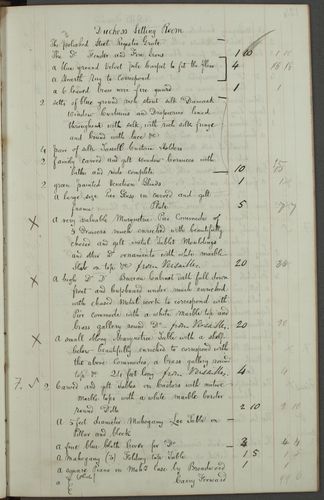 Duchess Sitting Room
The polished Steel Register Grate
The Do Fender and Fire Irons 1 10
a blue ground Velvet pile Carpet to fit the floor 4 18 18
a Hearth Rug to Correspond
a 6 leaved brass wire fire guard 1 1
2 setts of blue ground rich stout silk Damask
Window Curtains and Draperies lined
throughout with silk, with rich silk fringe
and bound with lace &c
4 pair of silk Tassell Curtain Holders
2 Finely carved and gilt Window Cornices with
laths and ends complete 10
2 green painted Venetian Blinds 1
a large size Pier Glass in carved and gilt
frame Plate 5
X a very valuable Marquetrie Pier Commode of
3 Drawers much enriched with beautifully
chased and gilt metal Tablet Mouldings
and other Do ornaments with white marble
Slab on top &c from Versailles 20
X a high Do Do Dwarf Cabinet with fall down
front and Cupboard under much enriched
with chased Metal work to correspond with
Pier commode with a white Marble top and
brass gallery round Do from Versailles 20
X a small oblong Marquetrie Table with a shelf
below beautifully enriched to correspond with
the above Commodes, a brass gallery round
top &c 24 feet long from Versailles 4
2 Carved and gilt Tables on Castors with
marble tops with a white marble border
round Ditto 2 10
A 5 feet diameter Mahogany Loo Table on
Pillar and block
a fine blue Cloth Cover for Do 2
a Mahogany Folding top Table 1 5
a square Piano in Mahy Case by Broadwood 1
Carry Forward